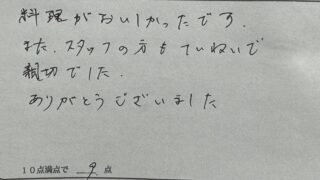 料理がおいしかったです。
また、スタッフの方もていねいで
親切でした。
ありがとうございました
10点満点で 9 点